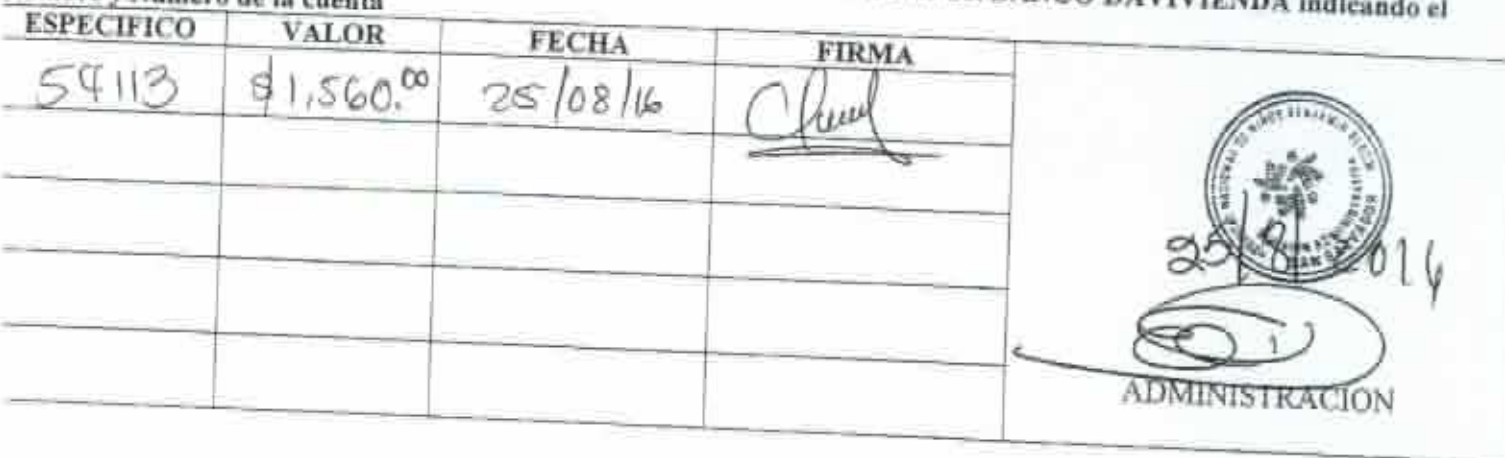 y Número de la cuenta BANCO DAVIVIENDA indicando el
ESPECIFICO VALOR FECHA FIRMA
54113 $1,560.00 25/08/16
25/8/2016
ADMINISTRACION